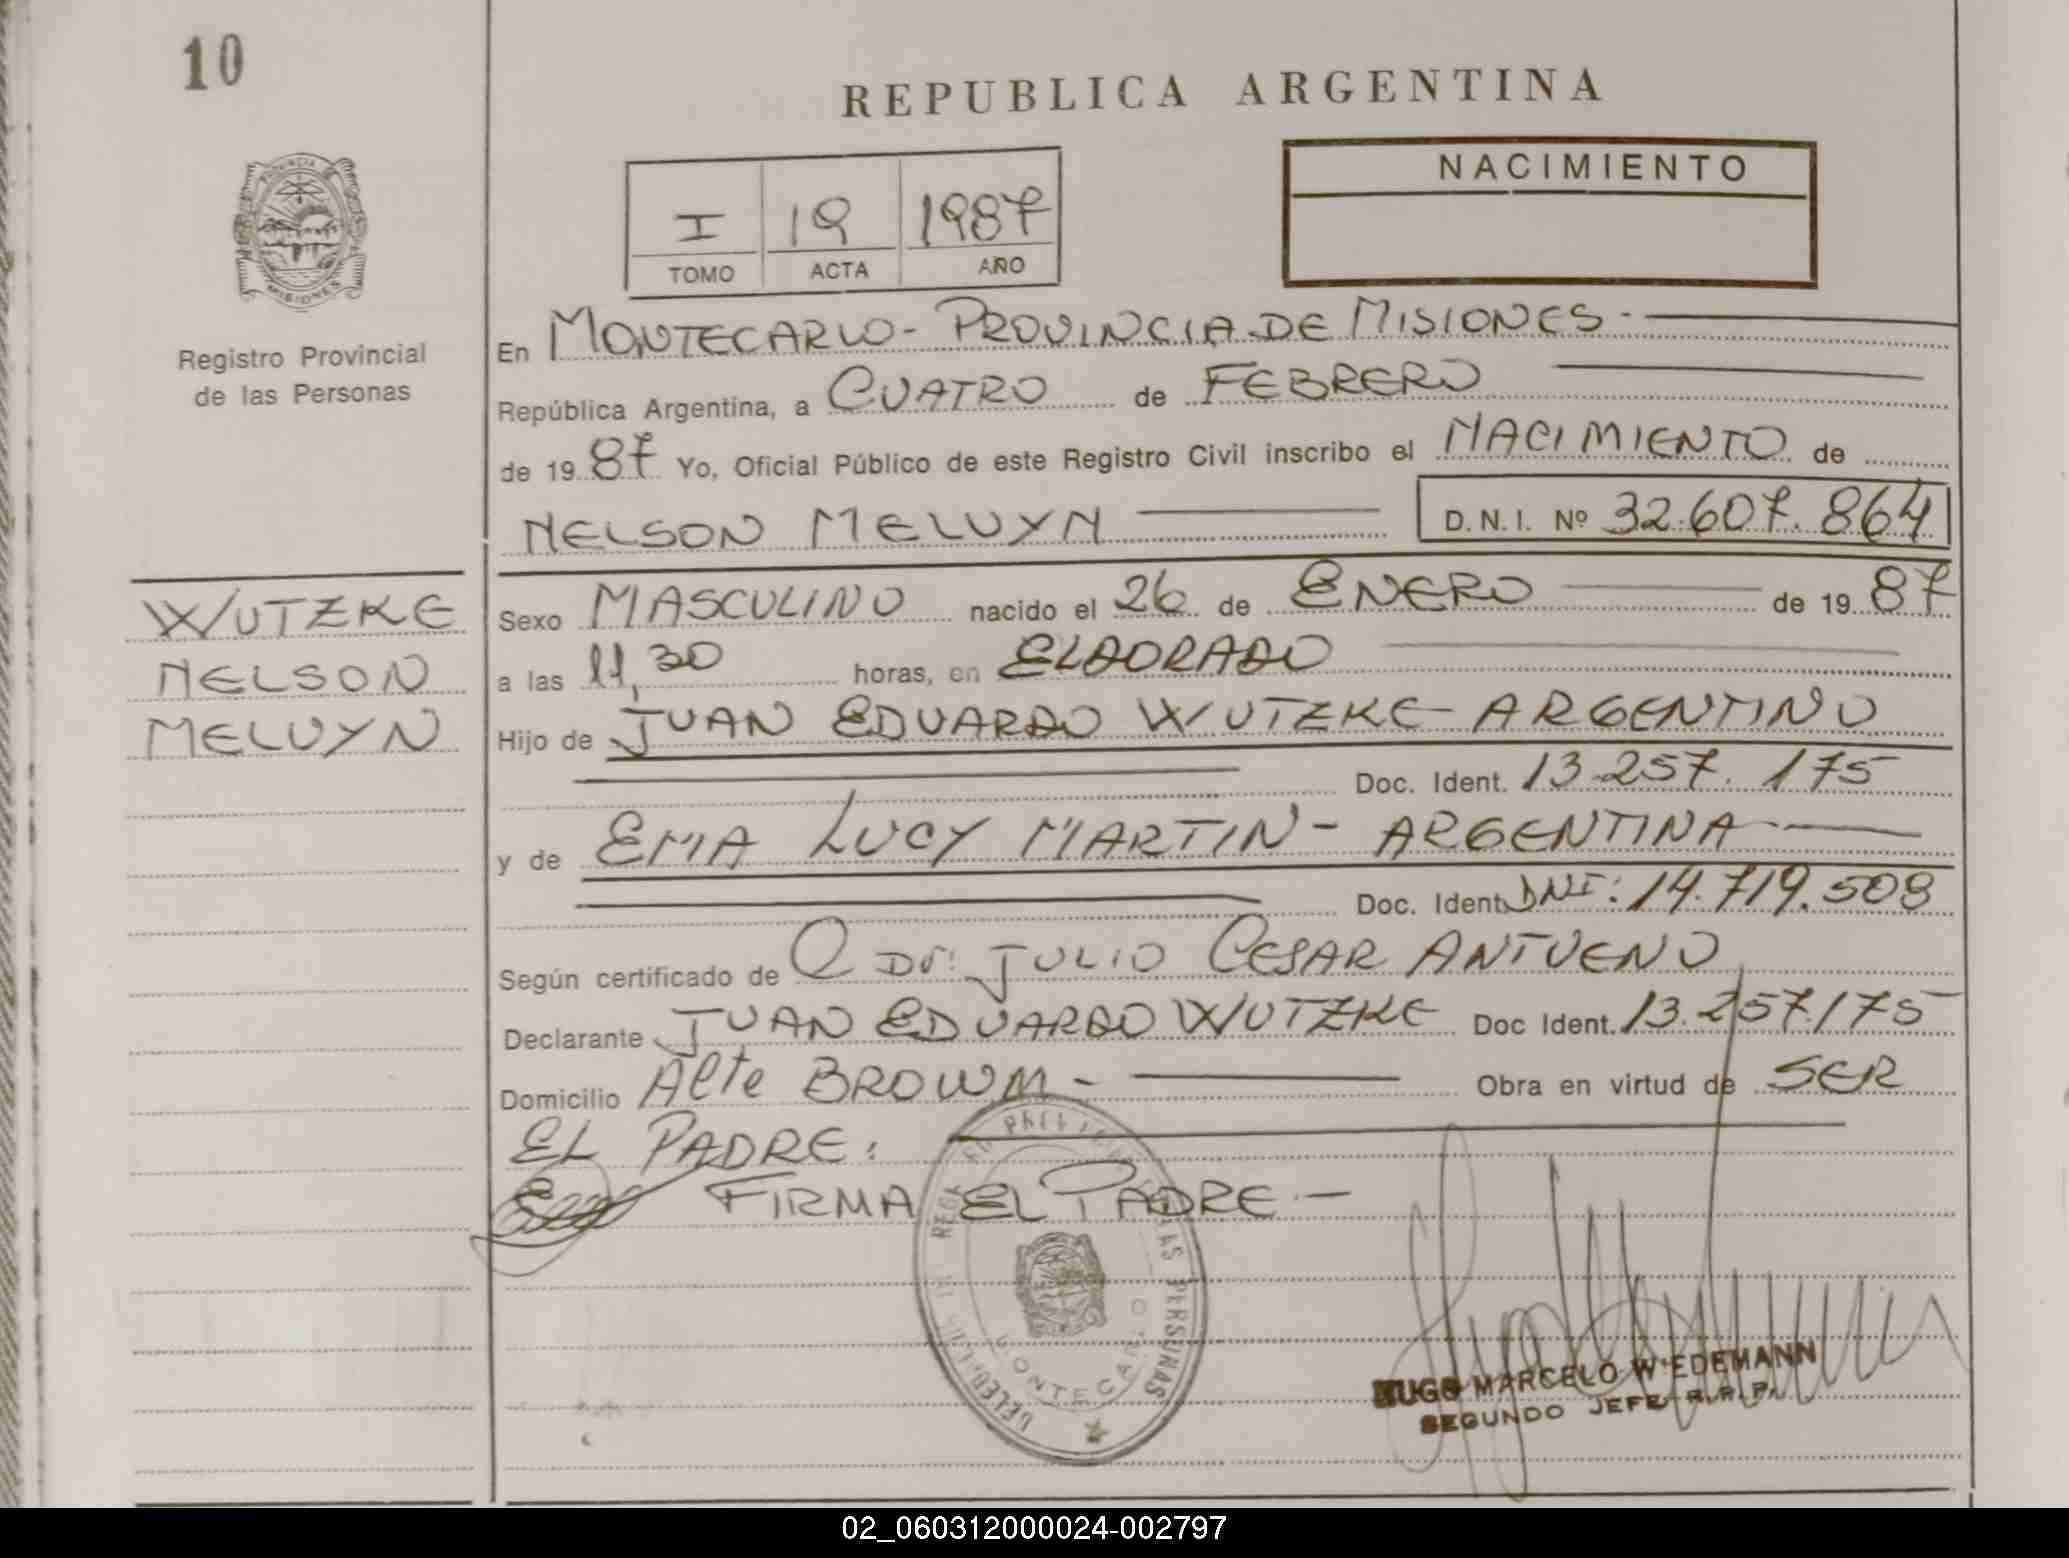 10
REPUBLICA ARGENTINA
PROVINCIA DE
MISIONES
Registro Provincial
de las Personas
I 19 1987
TOMO ACTA AÑO
NACIMIENTO
En MONTECARLO - PROVINCIA DE MISIONES -
República Argentina, a CUATRO de FEBRERO
de 19 87 Yo, Oficial Público de este Registro Civil inscribo el NACIMIENTO de
NELSON MELVYN D.N.I. Nº 32.607.864
WUTZKE
NELSON
MELVYN
Sexo MASCULINO nacido el 26 de ENERO de 19 87
a las 11,30 horas, en ELDORADO
Hijo de JUAN EDUARDO WUTZKE - ARGENTINO
Doc. Ident. 13.257.175
y de EMA LUCY MARTIN - ARGENTINA
Doc. Ident. DNI: 14.719.508
Según certificado de Dr: JULIO CESAR ANTUENO
Declarante JUAN EDUARDO WUTZKE Doc Ident. 13.257.175
Domicilio Alte BROWN - Obra en virtud de SER
EL PADRE:
FIRMA EL PADRE.-
LAS PERSONAS
MONTECARLO
HUGO MARCELO WIEDEMANN
SEGUNDO JEFE R.P.P.
02_060312000024-002797